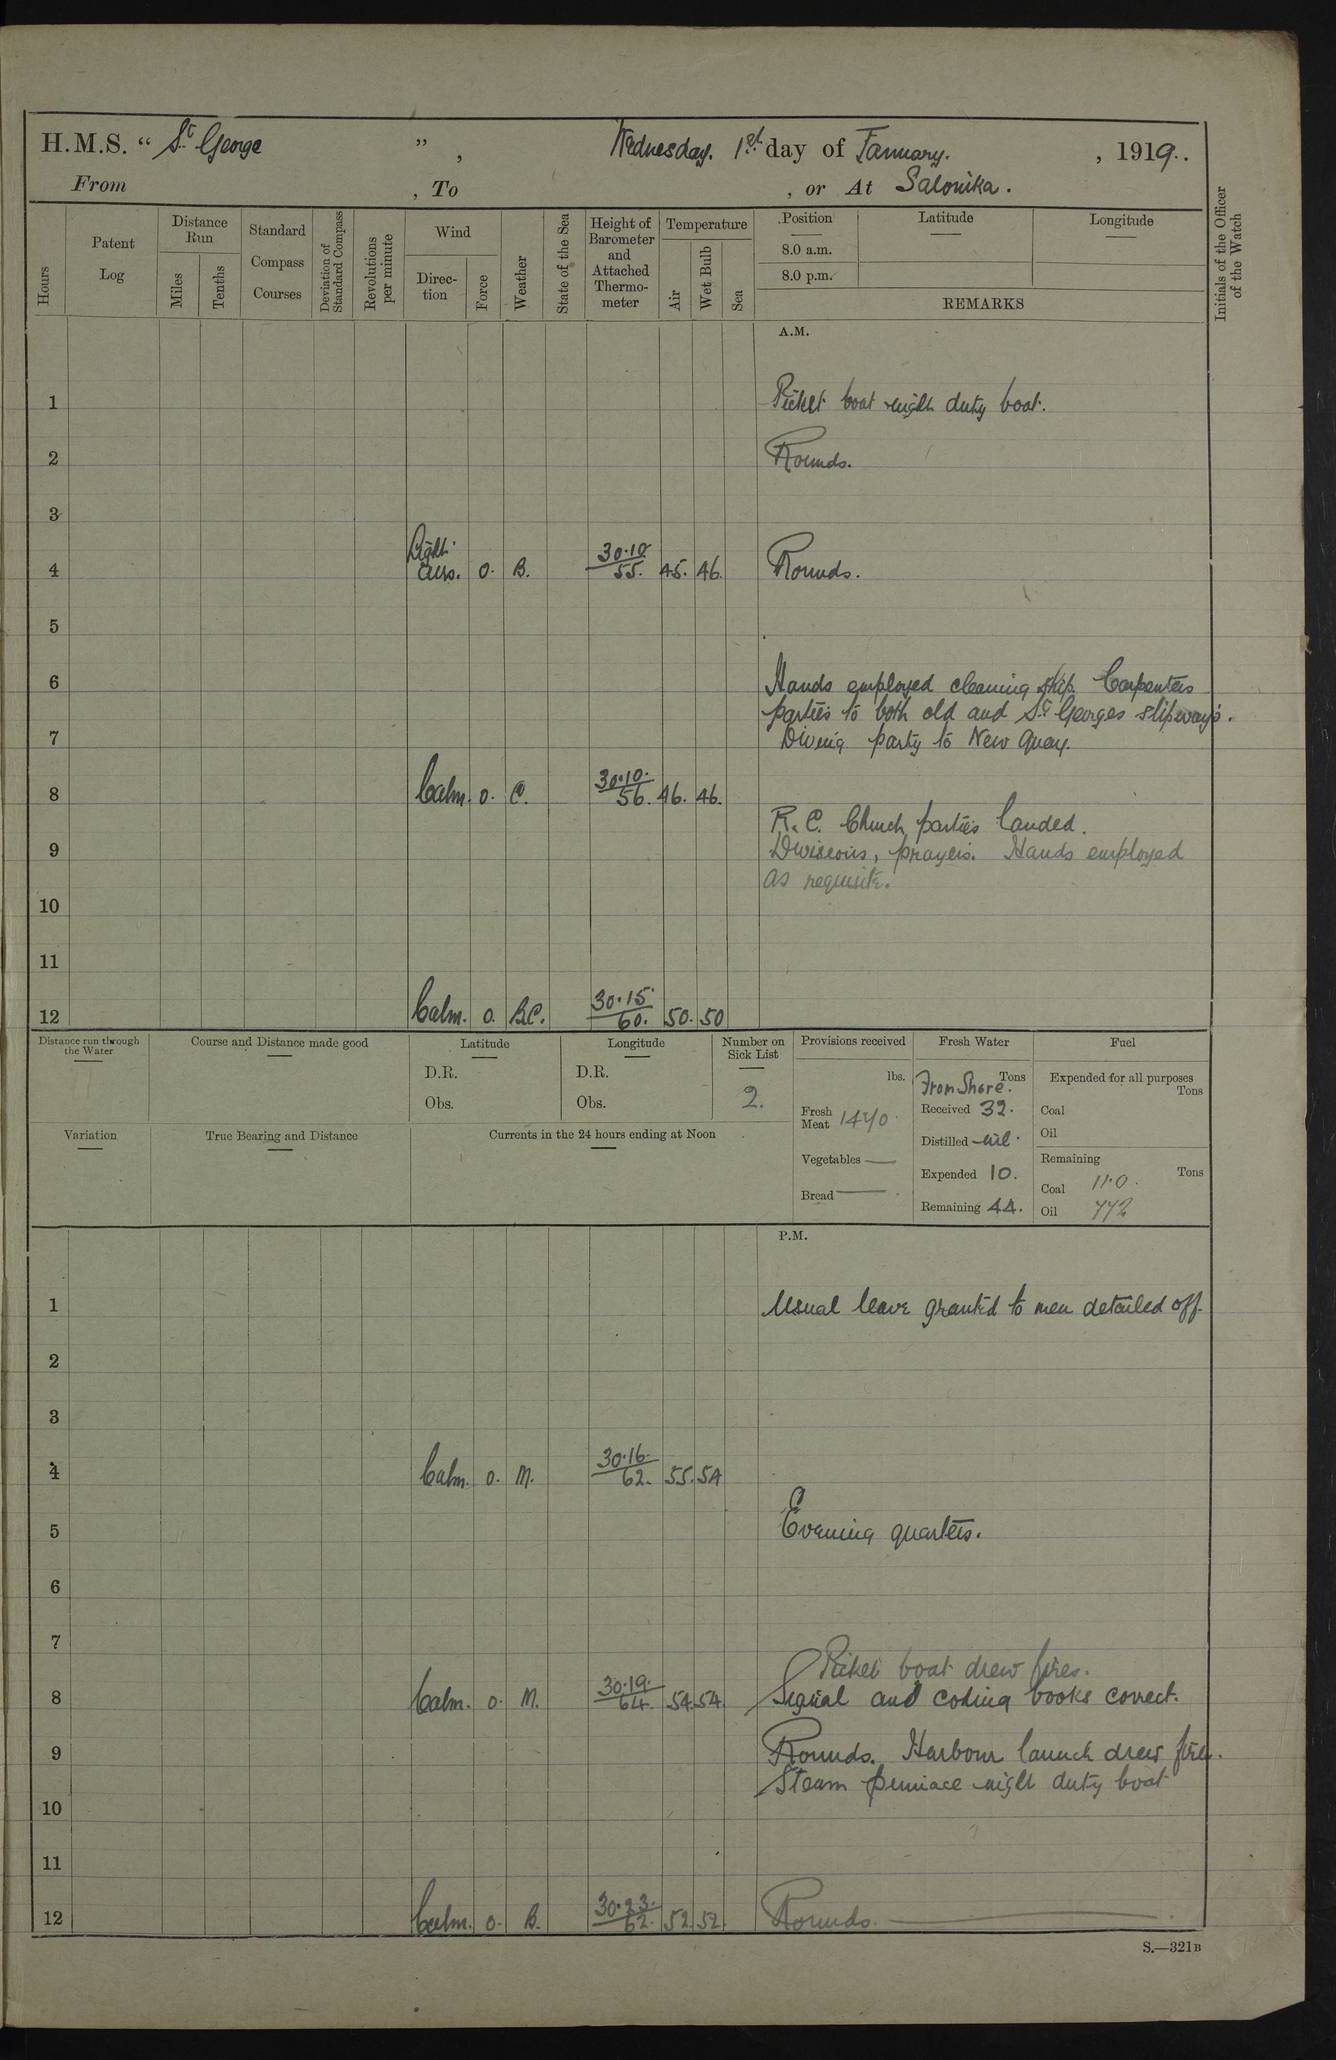 H.M.S. “ St George ” , Wednesday. 1st day of January. , 1919..
From , To , or At Salonika.
Hours
Patent Log
Distance Run
Miles
Tenths
Standard Compass Courses
Deviation of Standard Compass
Revolutions per minute
Wind
Direction
Force
Weather
State of the Sea
Height of Barometer and Attached Thermometer
Temperature
Air
Wet Bulb
Sea
Position
8.0 a.m.
8.0 p.m.
Latitude
Longitude
REMARKS
Initials of the Officer of the Watch
A.M.
1 Picket boat night duty boat.
2 Rounds.
3
4 Light airs. 0. B. 30.10 55. 45. 46. Rounds.
5
6 Hands employed cleaning ship. Carpenters
parties to both old and St Georges slipways.
7 Diving party to New Quay.
8 Calm. 0. C. 30.10. 56. 46. 46.
R.C. Church parties landed.
9 Divisions, prayers. Hands employed
as requisite.
10
11
12 Calm. 0. B.C. 30.15 60. 50. 50
Distance run through the Water
Course and Distance made good
Latitude
D.R.
Obs.
Longitude
D.R.
Obs.
Number on Sick List
2.
Provisions received
lbs.
Fresh Meat 1470.
Vegetables —
Bread —
Fresh Water
Tons
From Shore.
Received 32.
Distilled nil.
Expended 10.
Remaining 44.
Fuel
Expended for all purposes
Tons
Coal
Oil
Remaining
Tons
Coal 110.
Oil 772
Variation
True Bearing and Distance
Currents in the 24 hours ending at Noon
P.M.
1 Usual leave granted to men detailed off.
2
3
4 Calm. 0. M. 30.16. 62. 55. 54
5 Evening quarters.
6
7
Picket boat drew fires.
8 Calm. 0. M. 30.19. 64. 54. 54. Signal and coding books correct.
9 Rounds. Harbour launch drew fires.
Steam pinnace night duty boat
10
11
12 Calm. 0. B. 30.23. 62. 52. 52. Rounds.
S.—321B